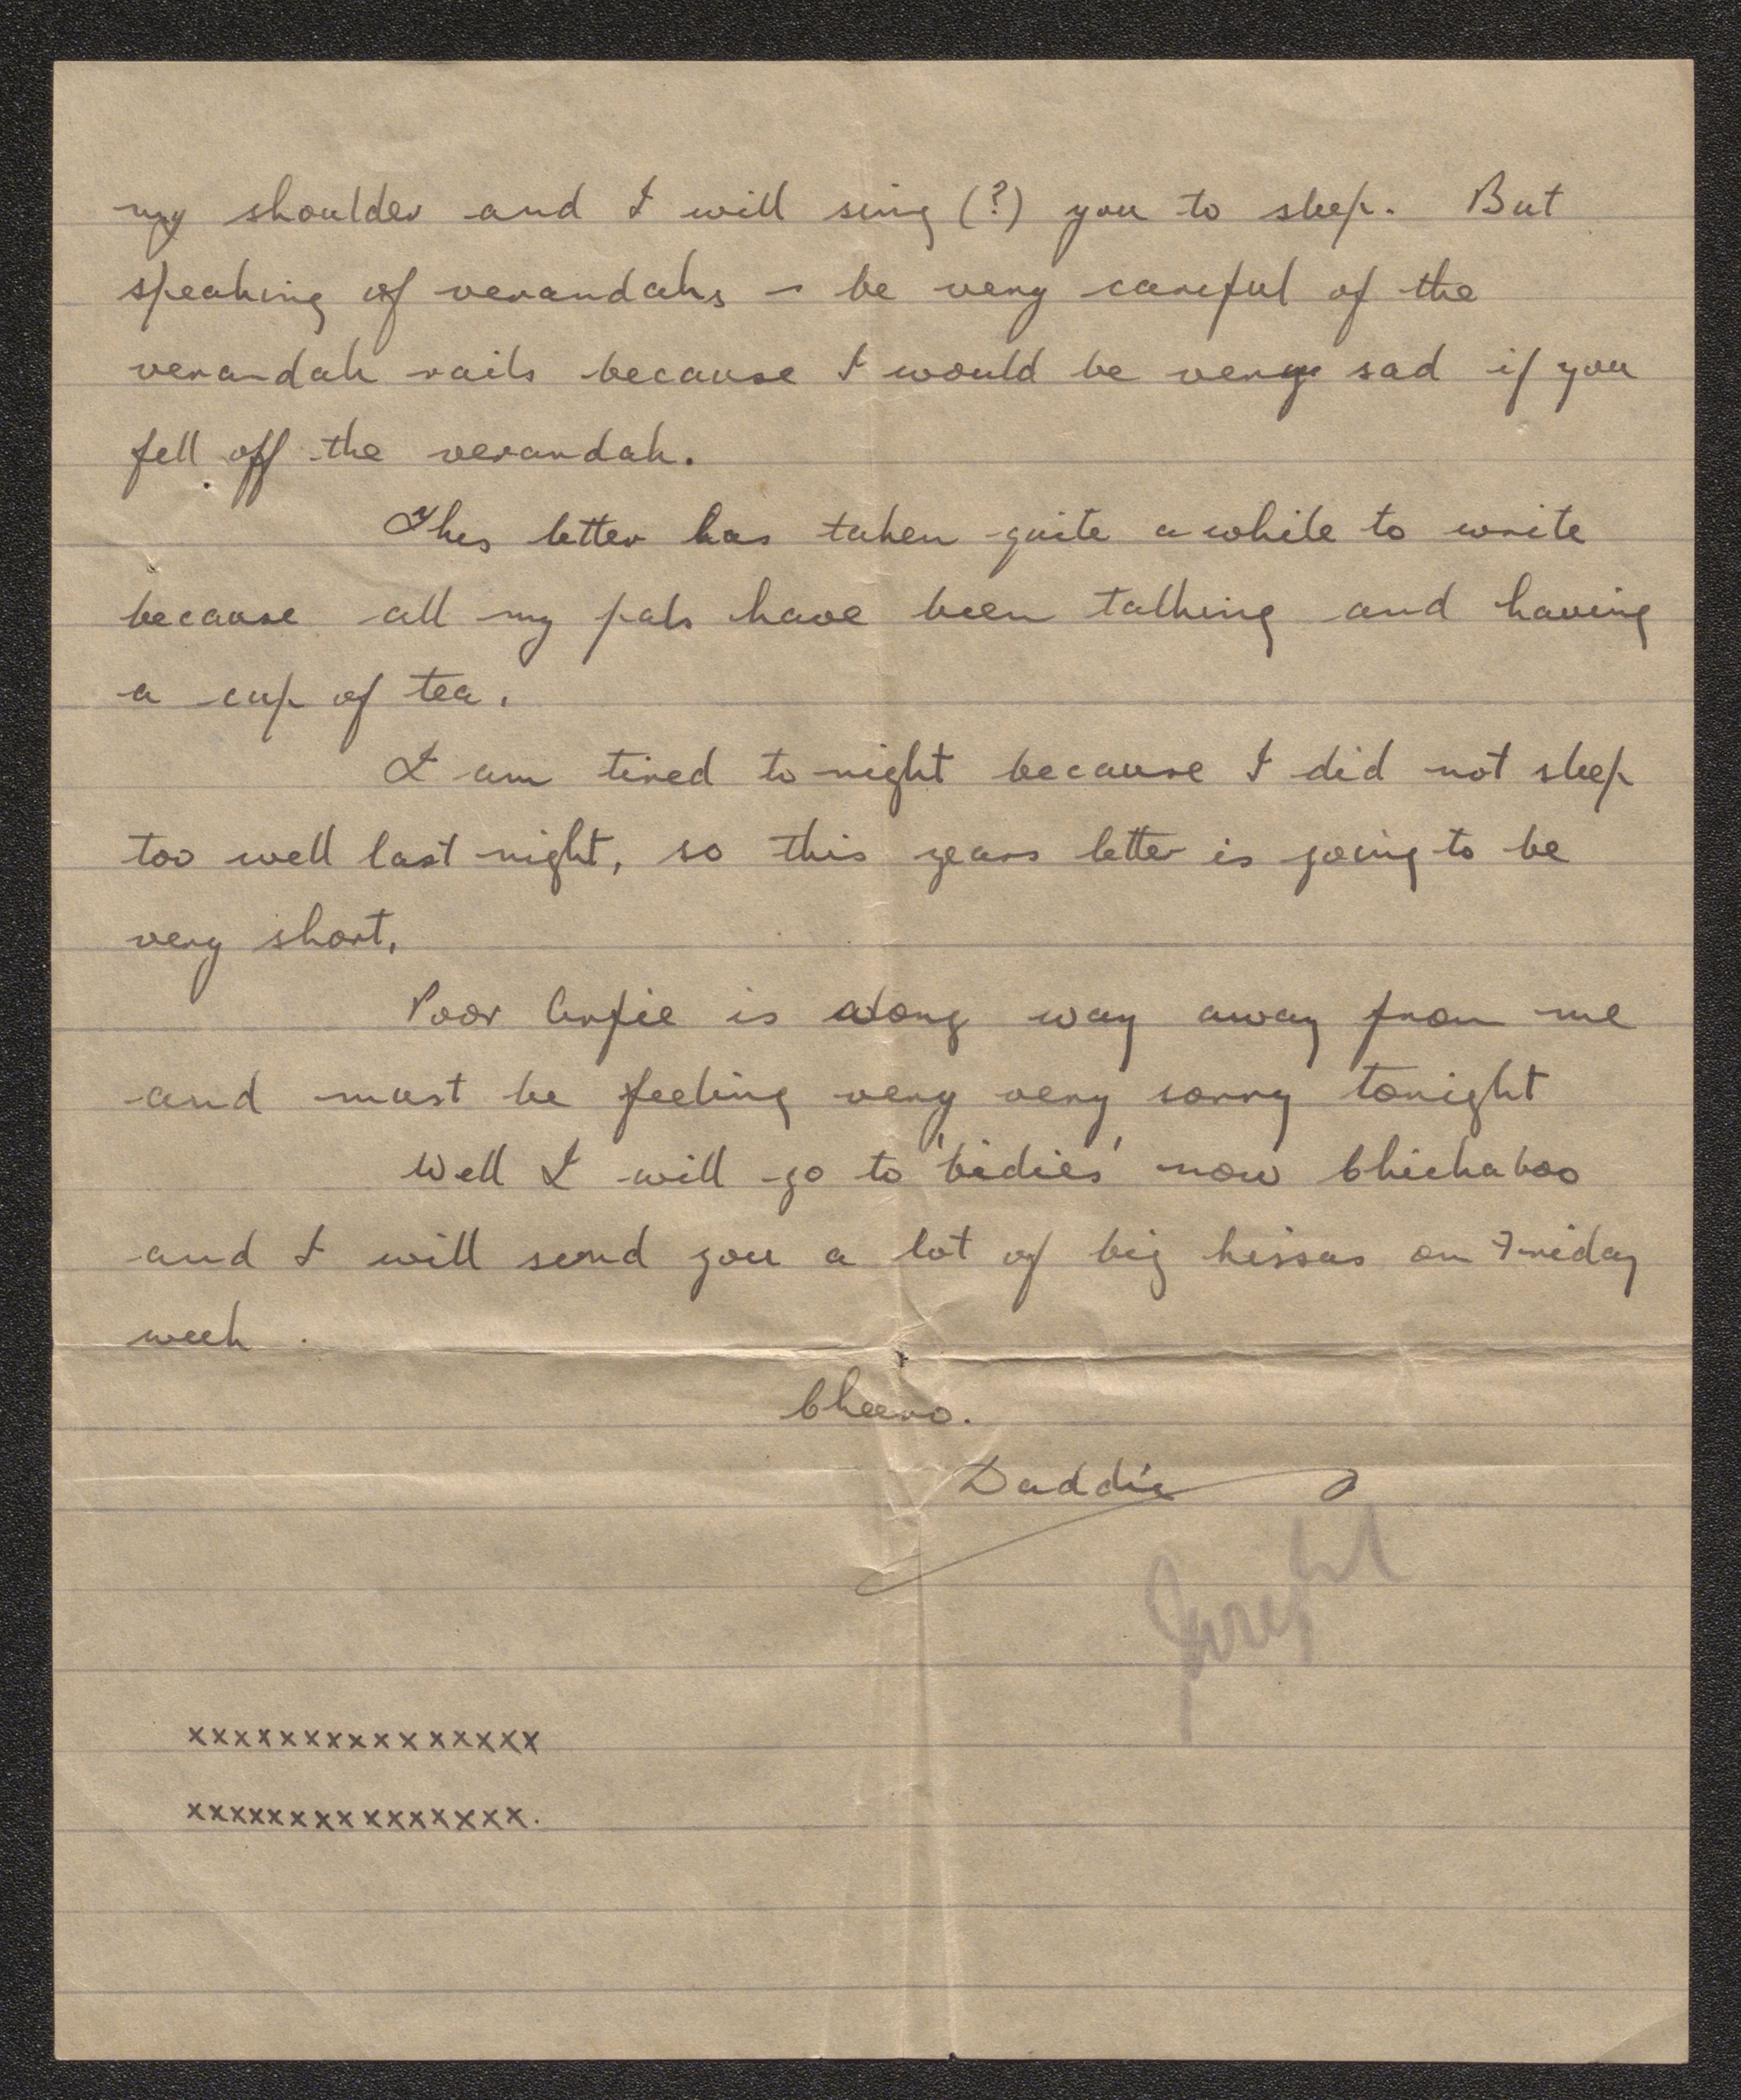 my shoulder and I will sing (?) you to sleep. But
speaking of verandahs - be very careful of the
verandah rails because I would be very sad if you
fell off the verandah.
This letter has taken quite a while to write
because all my pals have been talking and having
a cup of tea.
I am tired to night because I did not sleep
too well last night, so this years letter is going to be
very short.
Poor is along way away from me
and must be feeling very very sorry tonight
Well I will go to 'bidies' now Chickaboo
and I will send you a lot of big kissas on Friday
week.
Cheero.
Daddie
xxxxxxxxxxxxxxx
xxxxxxxxxxxxxxx.